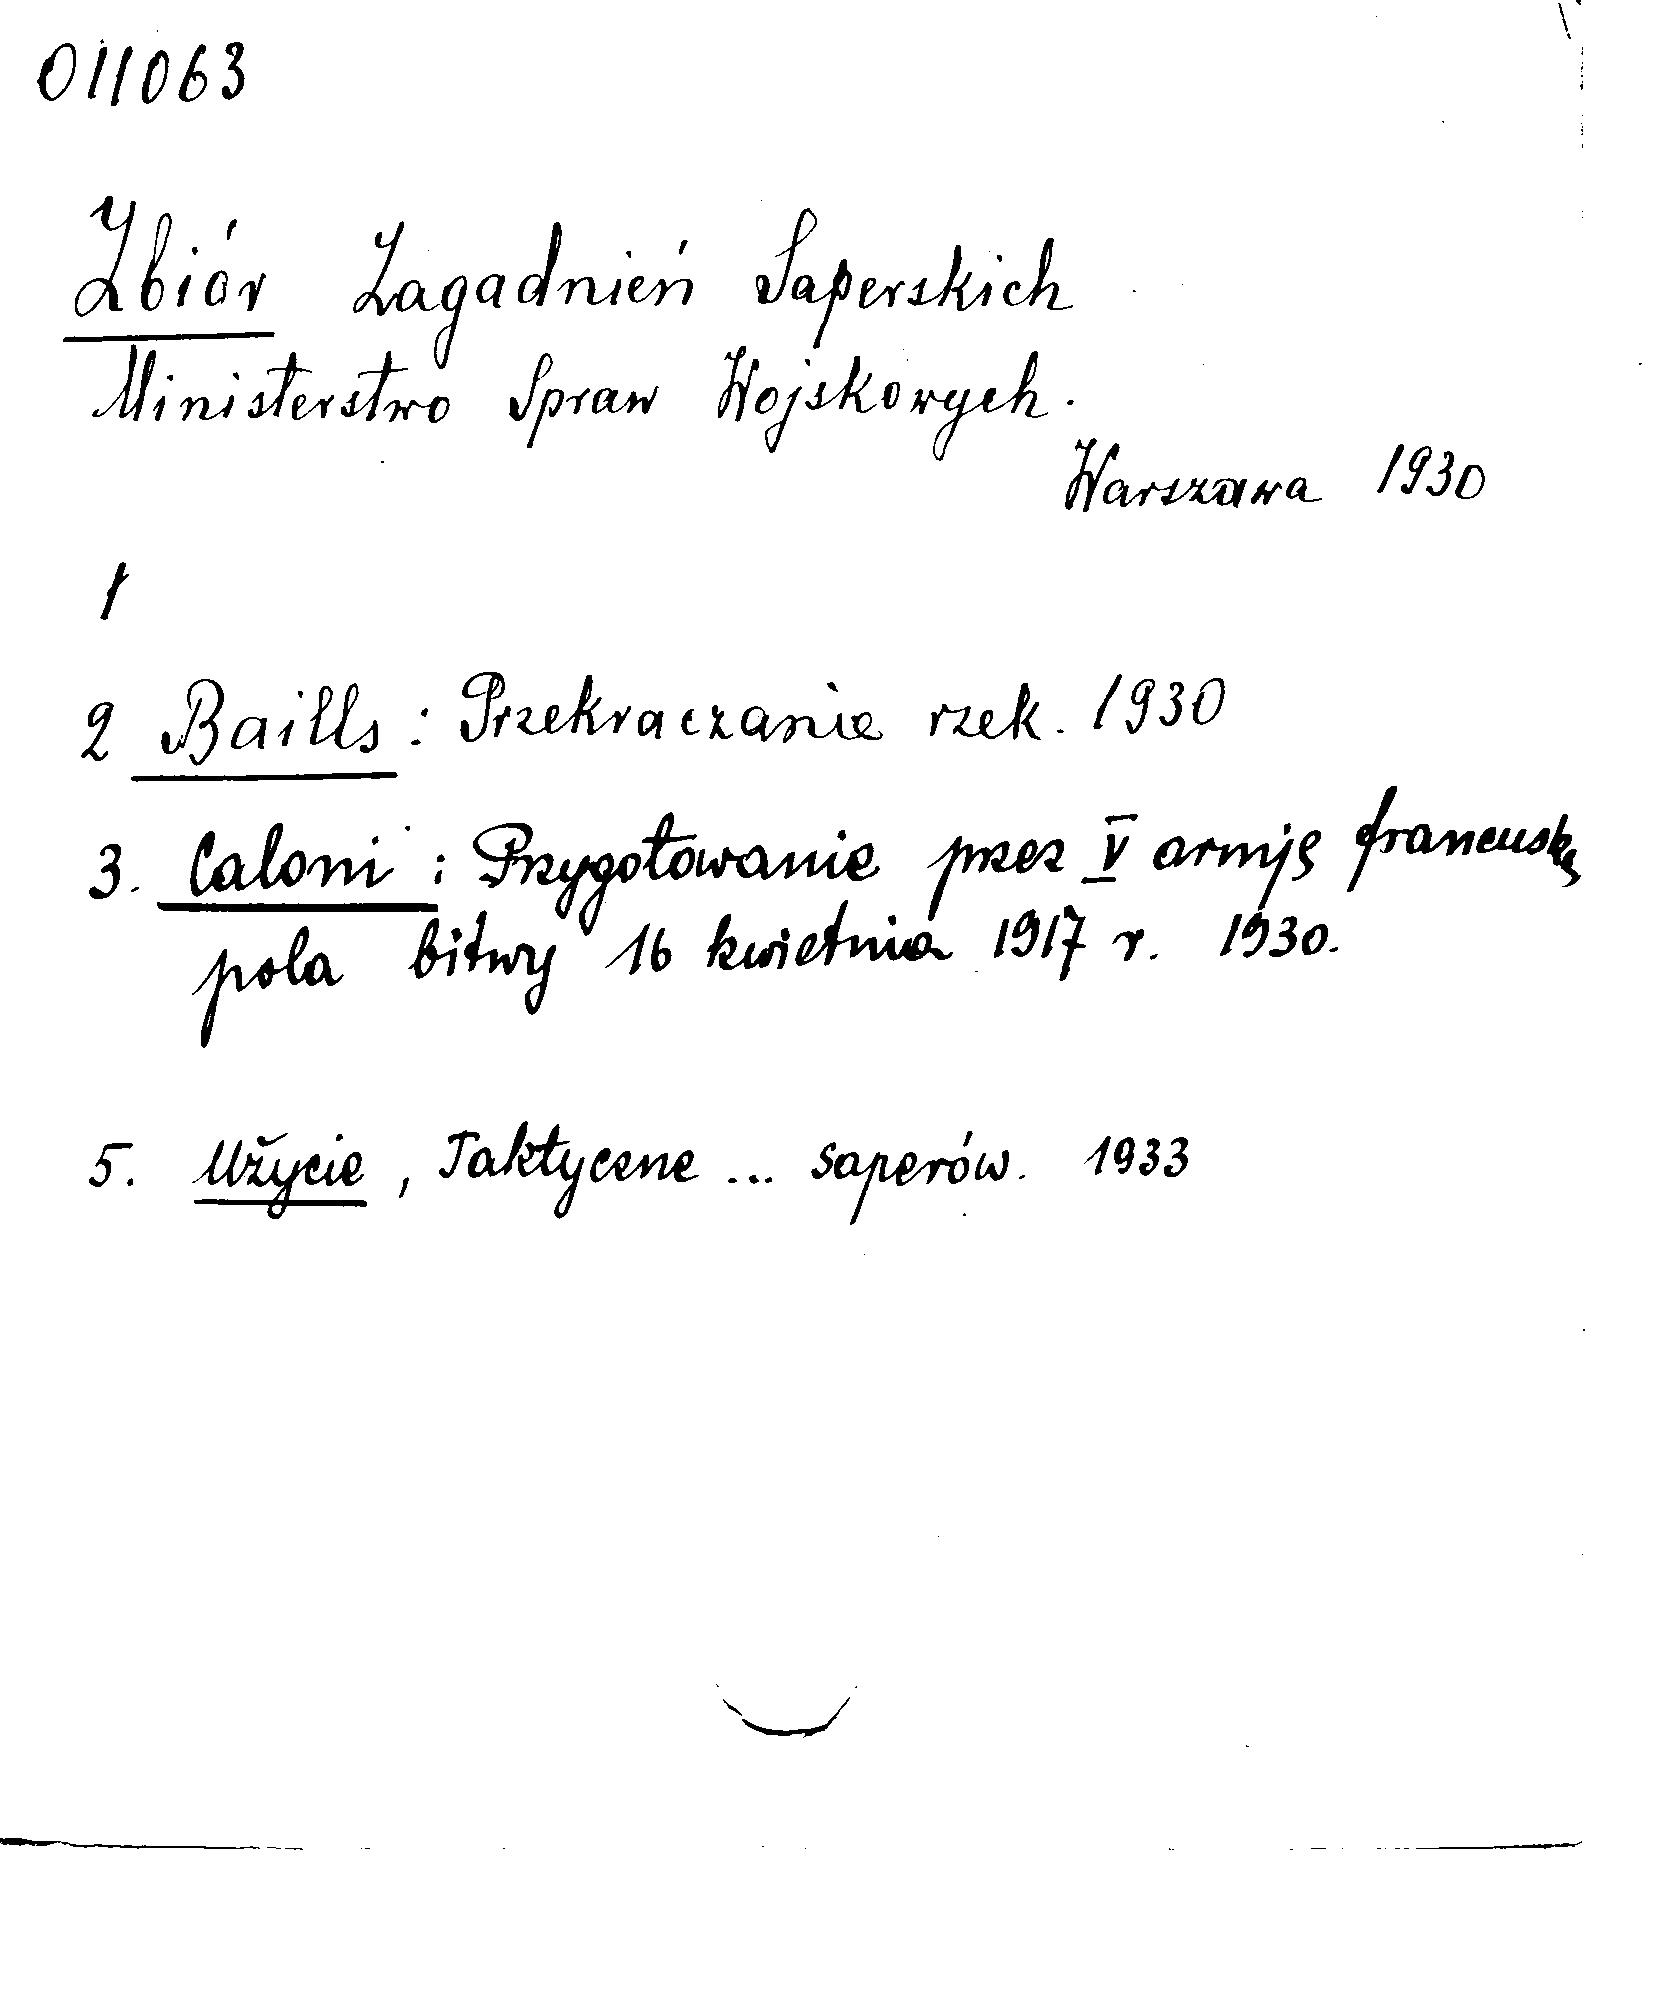 011063
Zbiór Zagadnień Saperskich
Ministerstwo Spraw Wojskowych.
Warszawa 1930
1
2 Baills : Przekraczanie rzek. 1930
3. Caloni : Przygotowanie przez V armję francuską
pola bitwy 16 kwietnia 1917 r. 1930.
5. Użycie, Taktyczne ... saperów. 1933